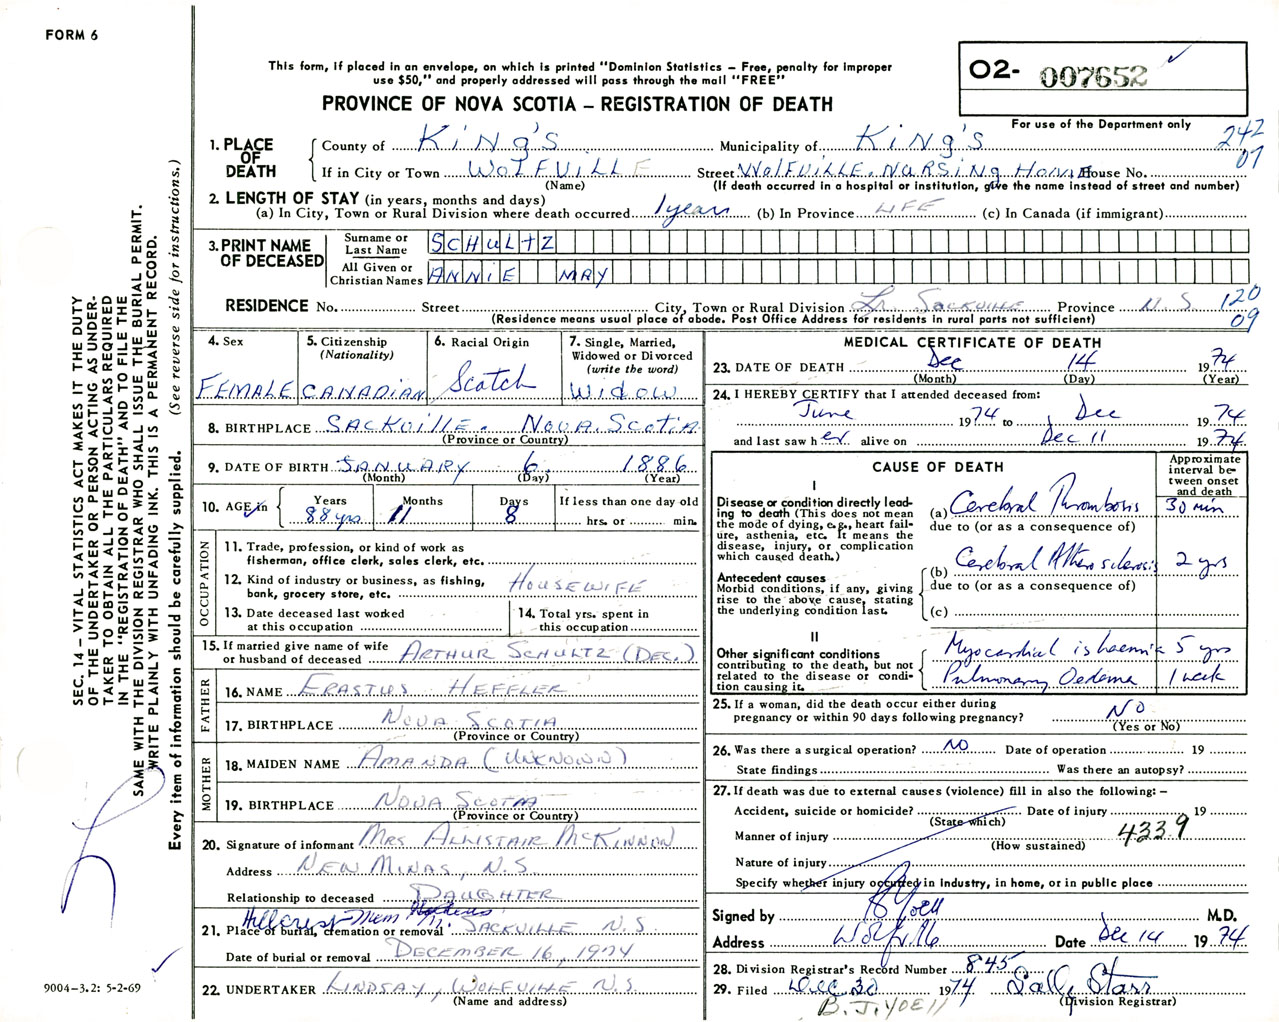 FORM 6
This form, if placed in an envelope, on which is printed "Dominion Statistics – Free, penalty for improper
use $50," and properly addressed will pass through the mail "FREE"
PROVINCE OF NOVA SCOTIA – REGISTRATION OF DEATH
O2- 007652
For use of the Department only
242
07
1. PLACE OF DEATH
County of King's Municipality of King's
If in City or Town Wolfville Street Wolfville Nursing Home House No.
(Name) (If death occurred in a hospital or institution, give the name instead of street and number)
2. LENGTH OF STAY (in years, months and days)
(a) In City, Town or Rural Division where death occurred 1 years (b) In Province LIFE (c) In Canada (if immigrant)
3. PRINT NAME OF DECEASED
Surname or Last Name SCHULTZ
All Given or Christian Names ANNIE MAY
RESIDENCE No. Street City, Town or Rural Division Lr. Sackville Province N.S
120
09
(Residence means usual place of abode. Post Office Address for residents in rural parts not sufficient)
4. Sex FEMALE
5. Citizenship (Nationality) CANADIAN
6. Racial Origin Scotch
7. Single, Married, Widowed or Divorced (write the word) WIDOW
8. BIRTHPLACE SACKVILLE. NOVA SCOTIA
(Province or Country)
9. DATE OF BIRTH JANUARY 6, 1886
(Month) (Day) (Year)
10. AGE in Years 88 yrs Months 11 Days 8 If less than one day old
hrs. or min.
OCCUPATION
11. Trade, profession, or kind of work as
fisherman, office clerk, sales clerk, etc.
12. Kind of industry or business, as fishing,
bank, grocery store, etc. HOUSEWIFE
13. Date deceased last worked
at this occupation
14. Total yrs. spent in
this occupation
15. If married give name of wife
or husband of deceased ARTHUR SCHULTZ (DEC.)
FATHER
16. NAME ERASTUS HEFFLER
17. BIRTHPLACE NOVA SCOTIA
(Province or Country)
MOTHER
18. MAIDEN NAME AMANDA (UNKNOWN)
19. BIRTHPLACE NOVA SCOTIA
(Province or Country)
20. Signature of informant MRS ALLISTAIR MCKINNON
Address NEW MINAS, N.S
Relationship to deceased DAUGHTER
Hillcrest Mem Gardens
21. Place of burial, cremation or removal SACKVILLE N.S
Date of burial or removal DECEMBER 16, 1974
22. UNDERTAKER LINDSAY, WOLFVILLE N.S.
(Name and address)
MEDICAL CERTIFICATE OF DEATH
23. DATE OF DEATH Dec 14 1974
(Month) (Day) (Year)
24. I HEREBY CERTIFY that I attended deceased from:
June 1974 to Dec 1974
and last saw her alive on Dec 11 1974
CAUSE OF DEATH
Approximate interval between onset and death
I
Disease or condition directly lead-
ing to death (This does not mean
the mode of dying, e.g., heart fail-
ure, asthenia, etc. It means the
disease, injury, or complication
which caused death.)
(a) Cerebral Thrombosis 30 min
due to (or as a consequence of)
Antecedent causes
Morbid conditions, if any, giving
rise to the above cause, stating
the underlying condition last.
(b) Cerebral Atherosclerosis 2 yrs
due to (or as a consequence of)
(c)
II
Other significant conditions
contributing to the death, but not
related to the disease or condi-
tion causing it.
Myocardial ischaemia 5 yrs
Pulmonary Oedema 1 week
25. If a woman, did the death occur either during
pregnancy or within 90 days following pregnancy? NO
(Yes or No)
26. Was there a surgical operation? NO Date of operation 19
State findings Was there an autopsy?
27. If death was due to external causes (violence) fill in also the following: –
Accident, suicide or homicide? Date of injury 19
(State which)
Manner of injury 4339
(How sustained)
Nature of injury
Specify whether injury occurred in industry, in home, or in public place
Signed by B Yoell M.D.
Address Wolfville Date Dec 14 1974
28. Division Registrar's Record Number 845
29. Filed Dec 30 1974 Sally Starr
(Division Registrar)
B. J. YOELL
SEC. 14 – VITAL STATISTICS ACT MAKES IT THE DUTY
OF THE UNDERTAKER OR PERSON ACTING AS UNDER-
TAKER TO OBTAIN ALL THE PARTICULARS REQUIRED
IN THE "REGISTRATION OF DEATH" AND TO FILE THE
SAME WITH THE DIVISION REGISTRAR WHO SHALL ISSUE THE BURIAL PERMIT.
WRITE PLAINLY WITH UNFADING INK. THIS IS A PERMANENT RECORD.
Every item of information should be carefully supplied. (See reverse side for instructions.)
9004-3.2: 5-2-69